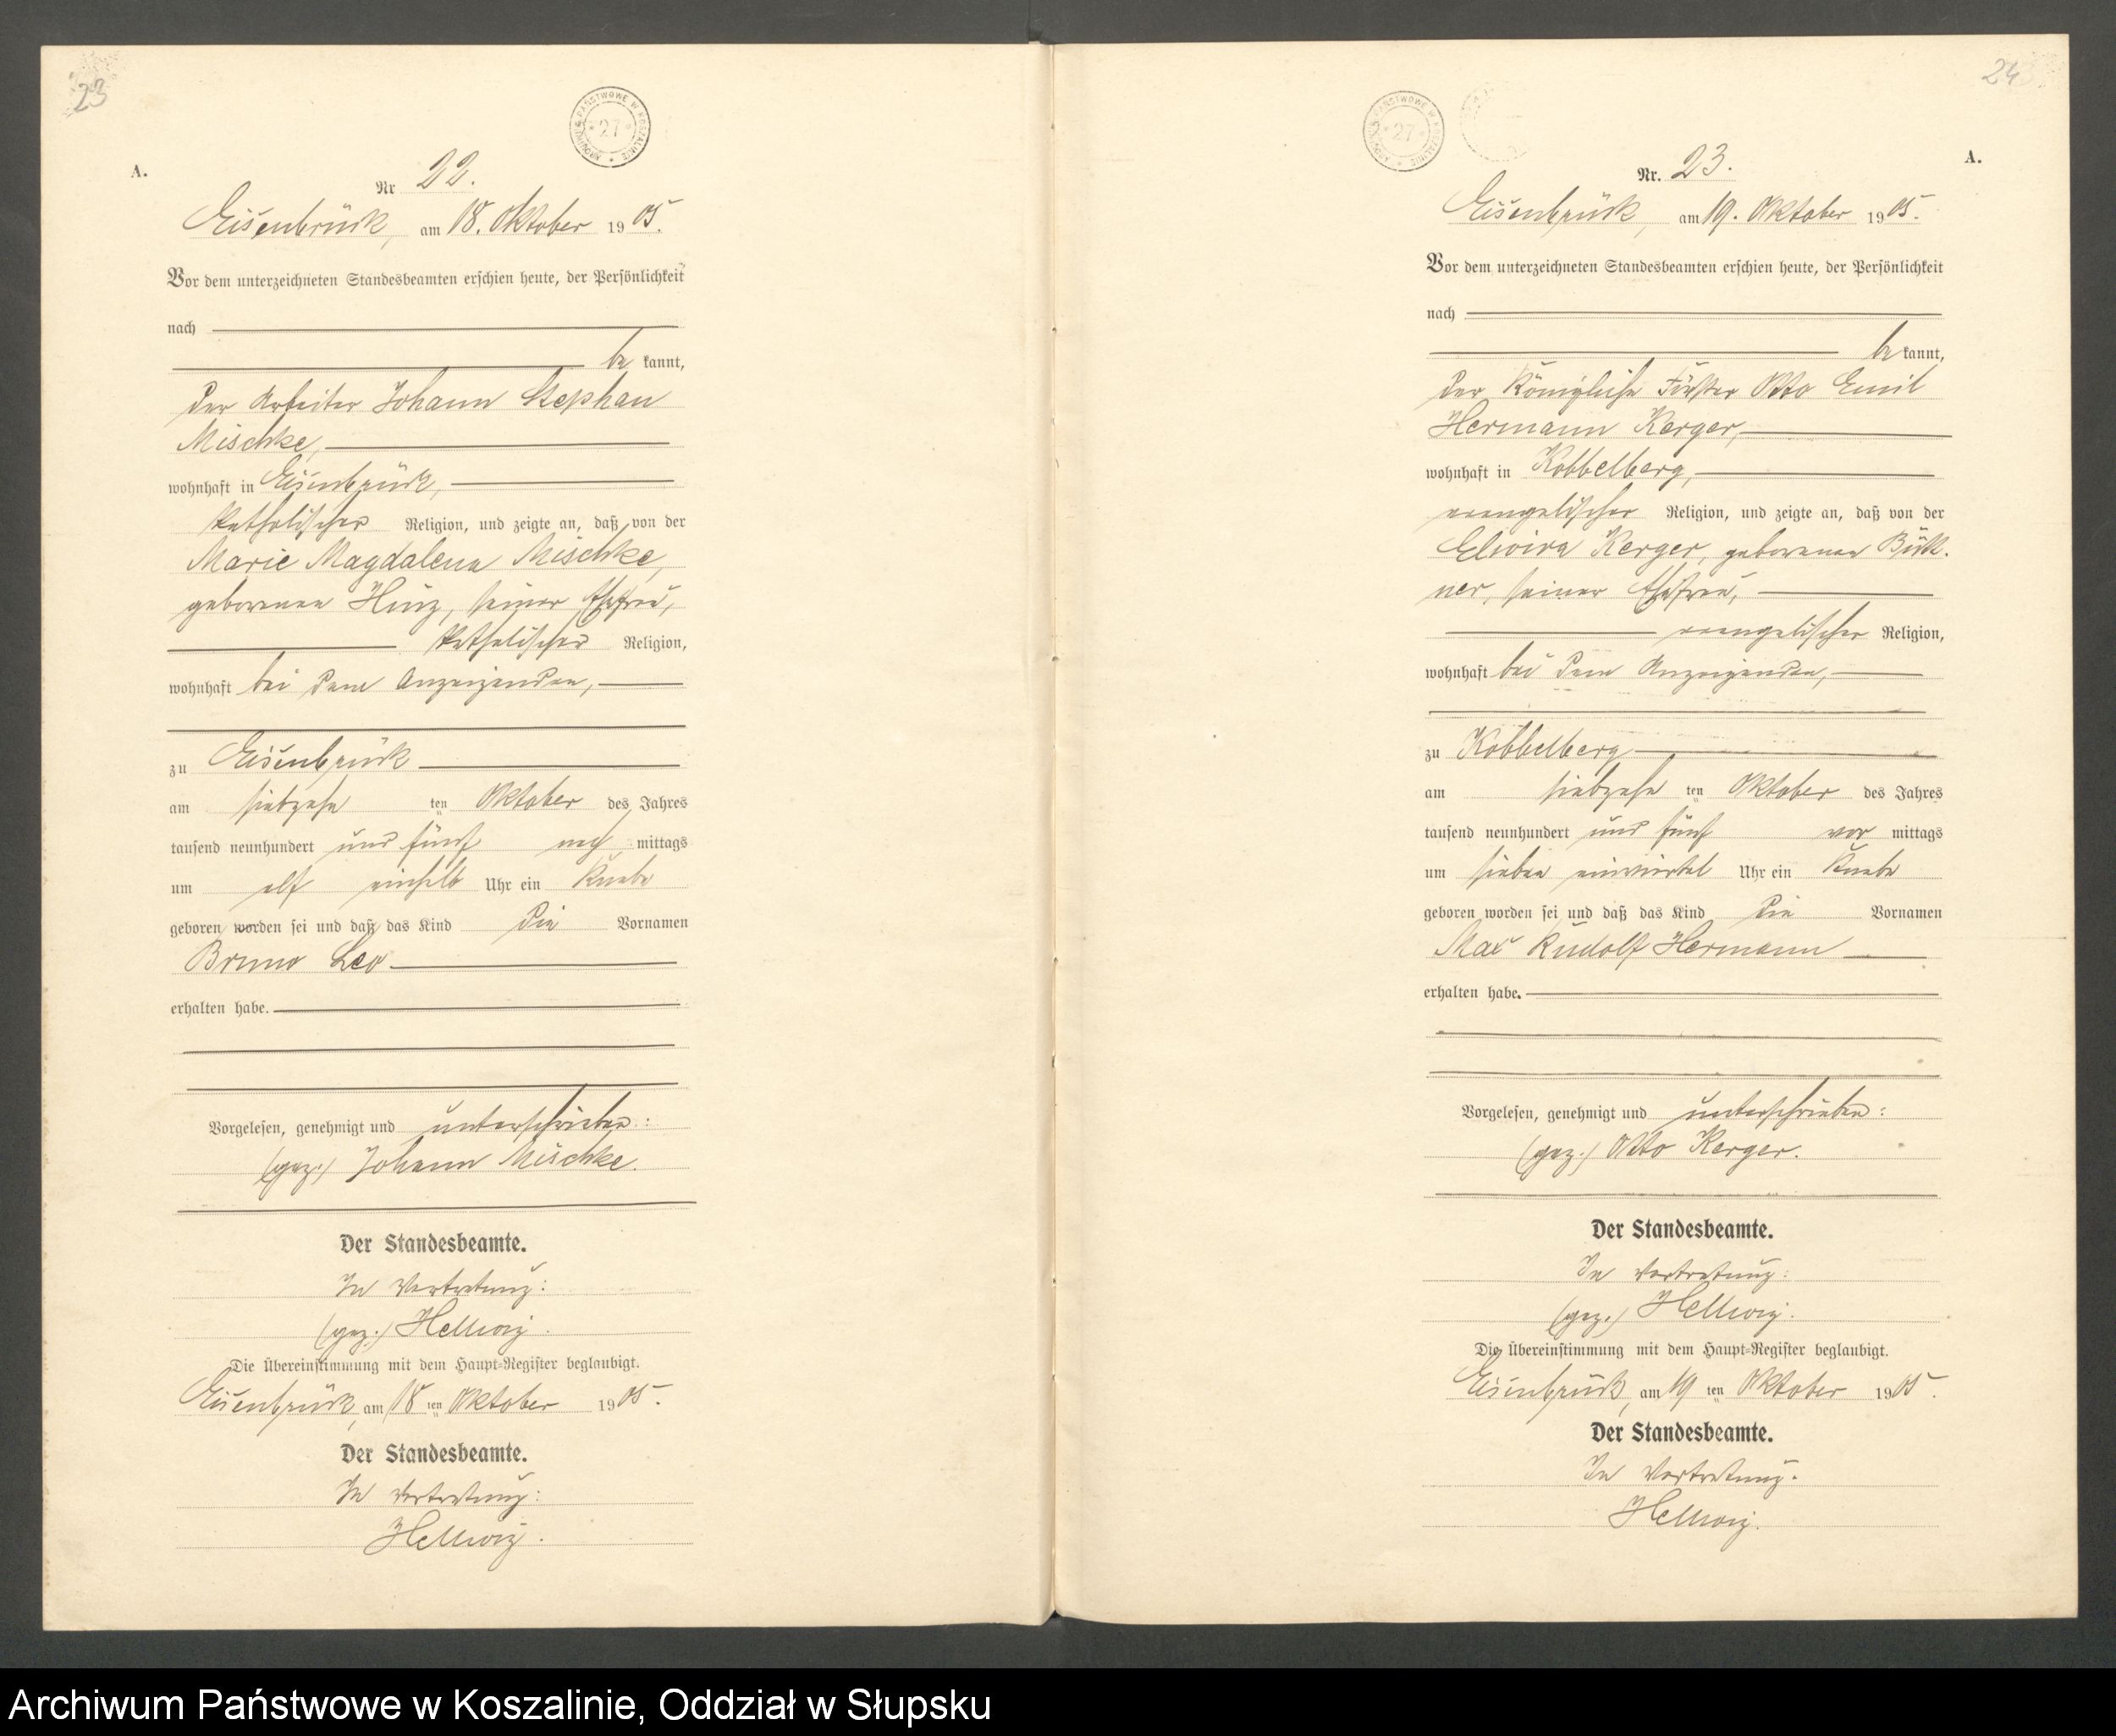 23
ARCHIWUM PAŃSTWOWE W KOSZALINIE
27
A.
Nr 22.
Eisenbrück, am 18. Oktober 1905.
Vor dem unterzeichneten Standesbeamten erschien heute, der Persönlichkeit
nach
be kannt,
der Arbeiter Johann Stephan
Mischke,
wohnhaft in Eisenbrück,
katholischer Religion, und zeigte an, daß von der
Marie Magdalena Mischke,
geborenen Hinz, seiner Ehefrau,
katholischer Religion,
wohnhaft bei dem Anzeigenden,
zu Eisenbrück
am siebzehn ten Oktober des Jahres
tausend neunhundert und fünf nach mittags
um elf einhalb Uhr ein Knabe
geboren worden sei und daß das Kind die Vornamen
Bruno Leo
erhalten habe.
Vorgelesen, genehmigt und unterschrieben:
(gez.) Johann Mischke.
Der Standesbeamte.
In Vertretung:
(gez.) Hellwig.
Die Übereinstimmung mit dem Haupt-Register beglaubigt.
Eisenbrück, am 18 ten Oktober 1905.
Der Standesbeamte.
In Vertretung:
Hellwig.
24
ARCHIWUM PAŃSTWOWE W KOSZALINIE
27
A.
Nr. 23.
Eisenbrück, am 19. Oktober 1905.
Vor dem unterzeichneten Standesbeamten erschien heute, der Persönlichkeit
nach
be kannt,
der Königliche Förster Otto Emil
Hermann Kerger,
wohnhaft in Kobbelberg,
evangelischer Religion, und zeigte an, daß von der
Elwira Kerger, geborenen Bütt-
ner, seiner Ehefrau,
evangelischer Religion,
wohnhaft bei dem Anzeigenden,
zu Kobbelberg
am siebzehn ten Oktober des Jahres
tausend neunhundert und fünf vor mittags
um sieben einviertel Uhr ein Knabe
geboren worden sei und daß das Kind die Vornamen
Max Rudolf Hermann
erhalten habe.
Vorgelesen, genehmigt und unterschrieben:
(gez.) Otto Kerger.
Der Standesbeamte.
In Vertretung:
(gez.) Hellwig.
Die Übereinstimmung mit dem Haupt-Register beglaubigt.
Eisenbrück, am 19 ten Oktober 1905.
Der Standesbeamte.
In Vertretung.
Hellwig.
Archiwum Państwowe w Koszalinie, Oddział w Słupsku